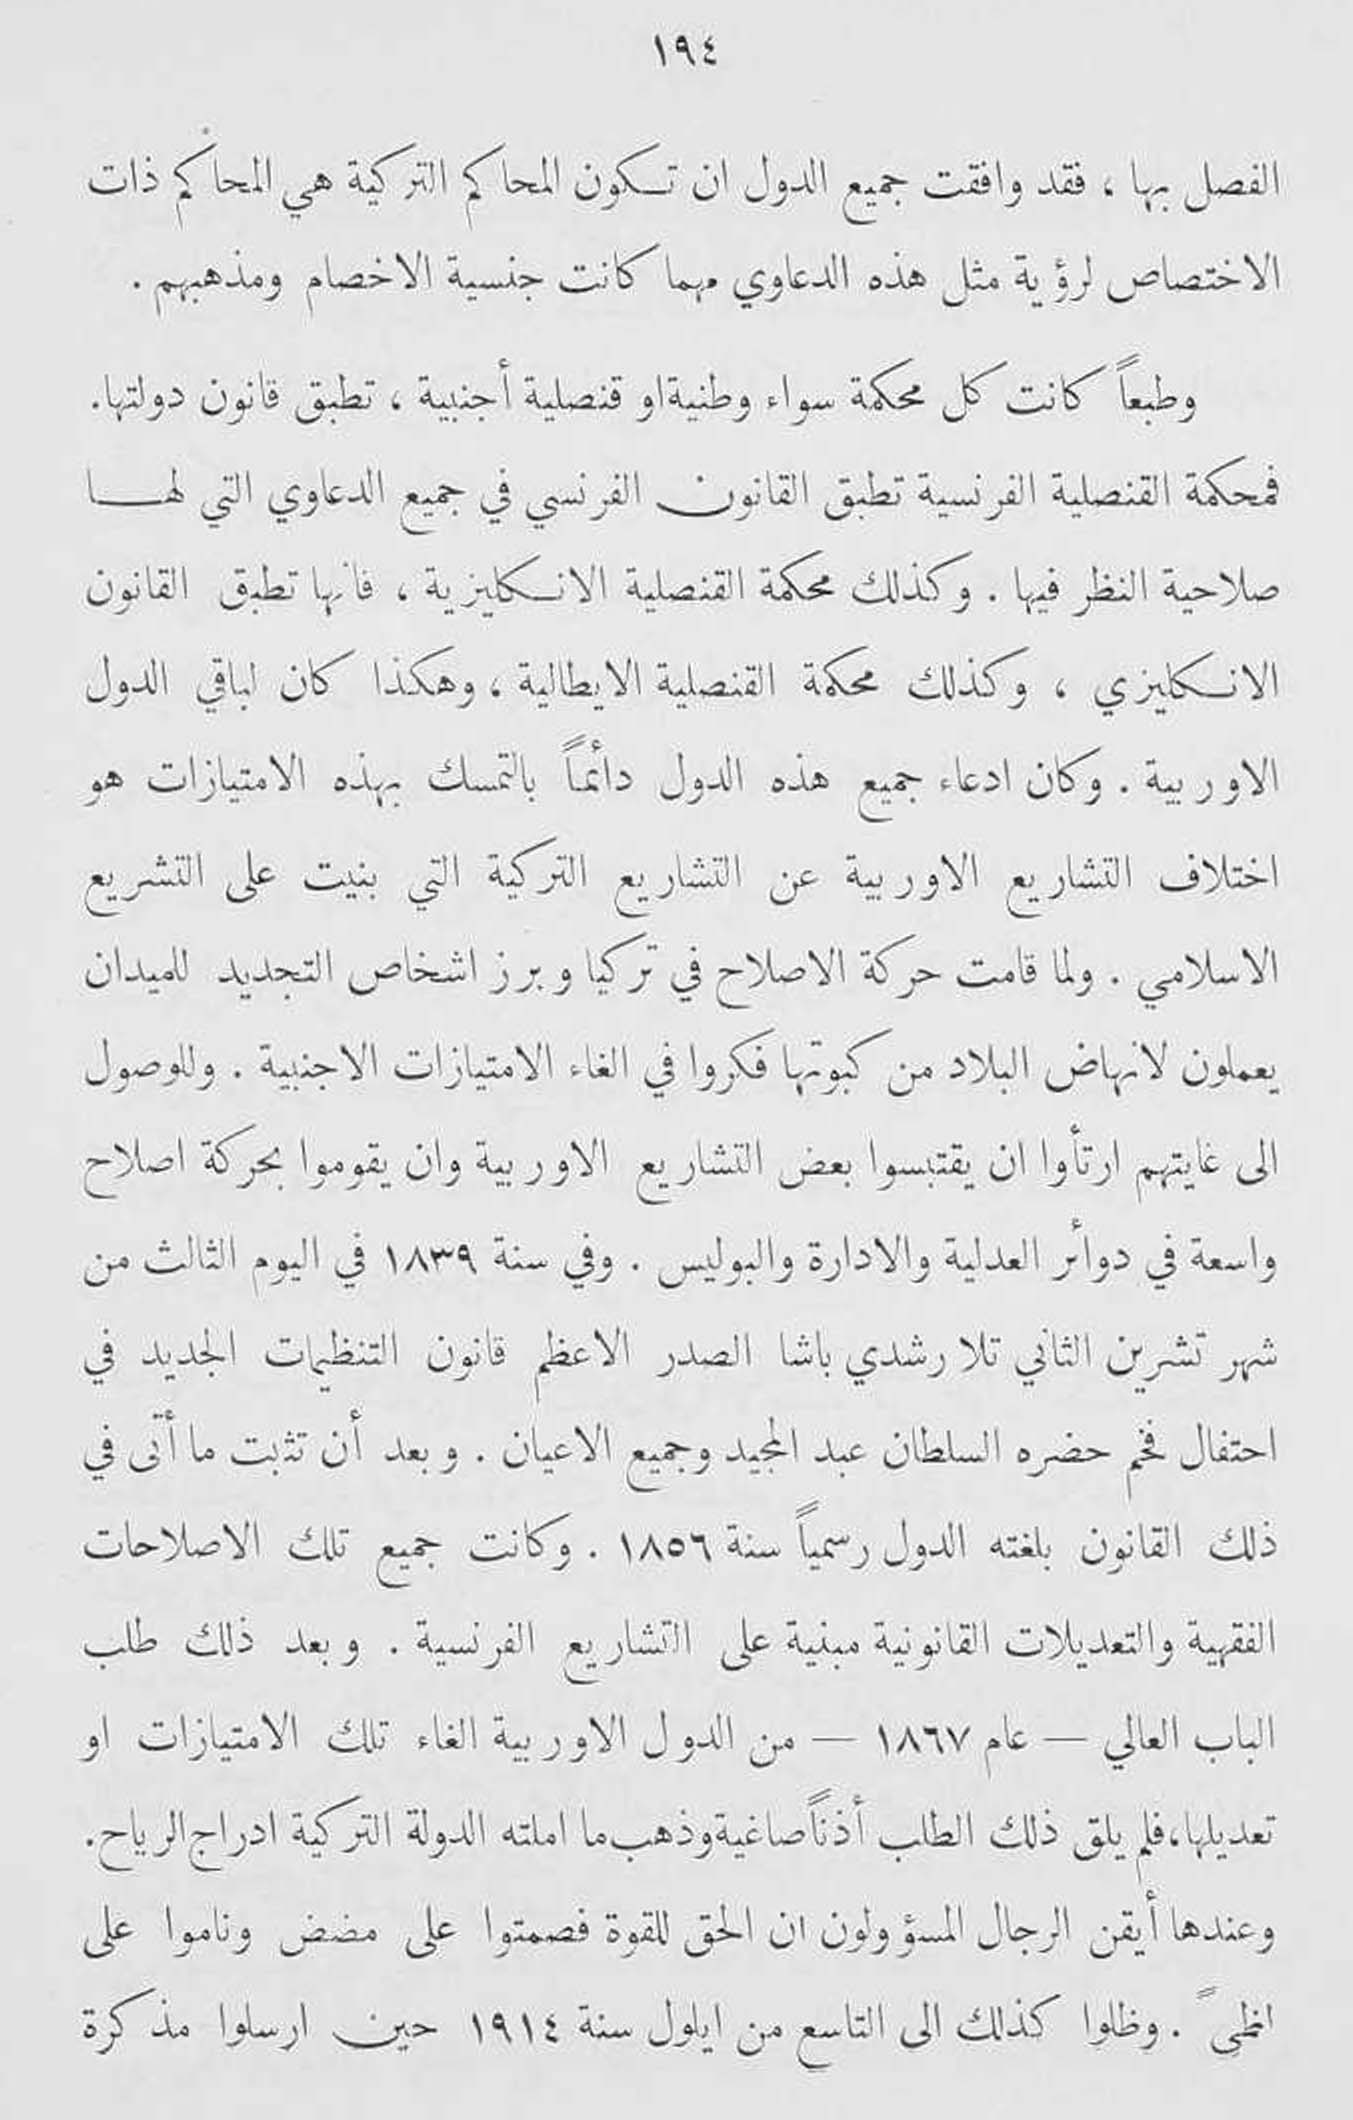 ١٩٤
الفصل بها ، فقد وافقت جميع الدول ان تكون المحاكم التركية هي المحاكم ذات
الاختصاص لرؤية مثل هذه الدعاوي مهما كانت جنسية الاخصام ومذهبهم .
وطبعاً كانت كل محكمة سواء وطنية او قنصلية أجنبية ، تطبق قانون دولتها.
فمحكمة القنصلية الفرنسية تطبق القانون الفرنسي في جميع الدعاوي التي لها
صلاحية النظر فيها . وكذلك محكمة القنصلية الانكليزية ، فانها تطبق القانون
الانكليزي ، وكذلك محكمة القنصلية الايطالية ، وهكذا كان لباقي الدول
الاوربية . وكان ادعاء جميع هذه الدول دائماً بالتمسك بهذه الامتيازات هو
اختلاف التشاريع الاوربية عن التشاريع التركية التي بنيت على التشريع
الاسلامي . ولما قامت حركة الاصلاح في تركيا وبرز اشخاص التجديد للميدان
يعملون لانهاض البلاد من كبوتها فكروا في الغاء الامتيازات الاجنبية . وللوصول
الى غايتهم ارتأوا ان يقتبسوا بعض التشاريع الاوربية وان يقوموا بحركة اصلاح
واسعة في دوائر العدلية والادارة والبوليس . وفي سنة ١٨٣٩ في اليوم الثالث من
شهر تشرين الثاني تلا رشدي باشا الصدر الاعظم قانون التنظيمات الجديد في
احتفال فخم حضره السلطان عبد المجيد وجميع الاعيان . وبعد أن تثبت ما أتى في
ذلك القانون بلغته الدول رسمياً سنة ١٨٥٦ . وكانت جميع تلك الاصلاحات
الفقهية والتعديلات القانونية مبنية على التشاريع الفرنسية . وبعد ذلك طلب
الباب العالي — عام ١٨٦٧ — من الدول الاوربية الغاء تلك الامتيازات او
تعديلها، فلم يلق ذلك الطلب أذناً صاغية وذهب ما املته الدولة التركية ادراج الرياح.
وعندها أيقن الرجال المسؤولون ان الحق للقوة فصمتوا على مضض وناموا على
وظلوا كذلك الى التاسع من ايلول سنة ١٩١٤ حين ارسلوا مذكرة